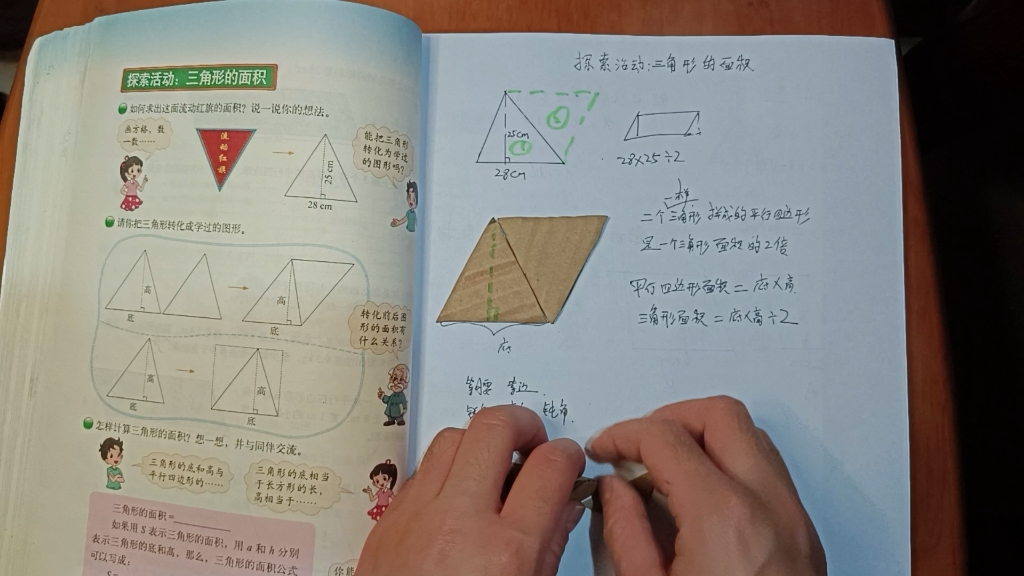 探索活动：三角形的面积
如何求出这面流动红旗的面积？说一说你的想法。
画方格，数
一数……
流
动
红
旗
25 cm
28 cm
能把三角形
转化为学过
的图形吗？
请你把三角形转化成学过的图形。
高
底
高
底
高
底
高
底
转化前后图
形的面积有
什么关系？
怎样计算三角形的面积？想一想，并与同伴交流。
三角形的底和高与
平行四边形的……
三角形的底相当
于长方形的长，
高相当于……
三角形的面积=
如果用 S 表示三角形的面积，用 a 和 h 分别
表示三角形的底和高，那么，三角形的面积公式
可以写成：
S=
探索活动:三角形的面积
25cm
28cm
28×25÷2
一样
二个三角形拼成的平行四边形
是一个三角形面积的2倍
平行四边形面积＝底×高
三角形面积＝底×高÷2
底
等腰 等边
钝角.